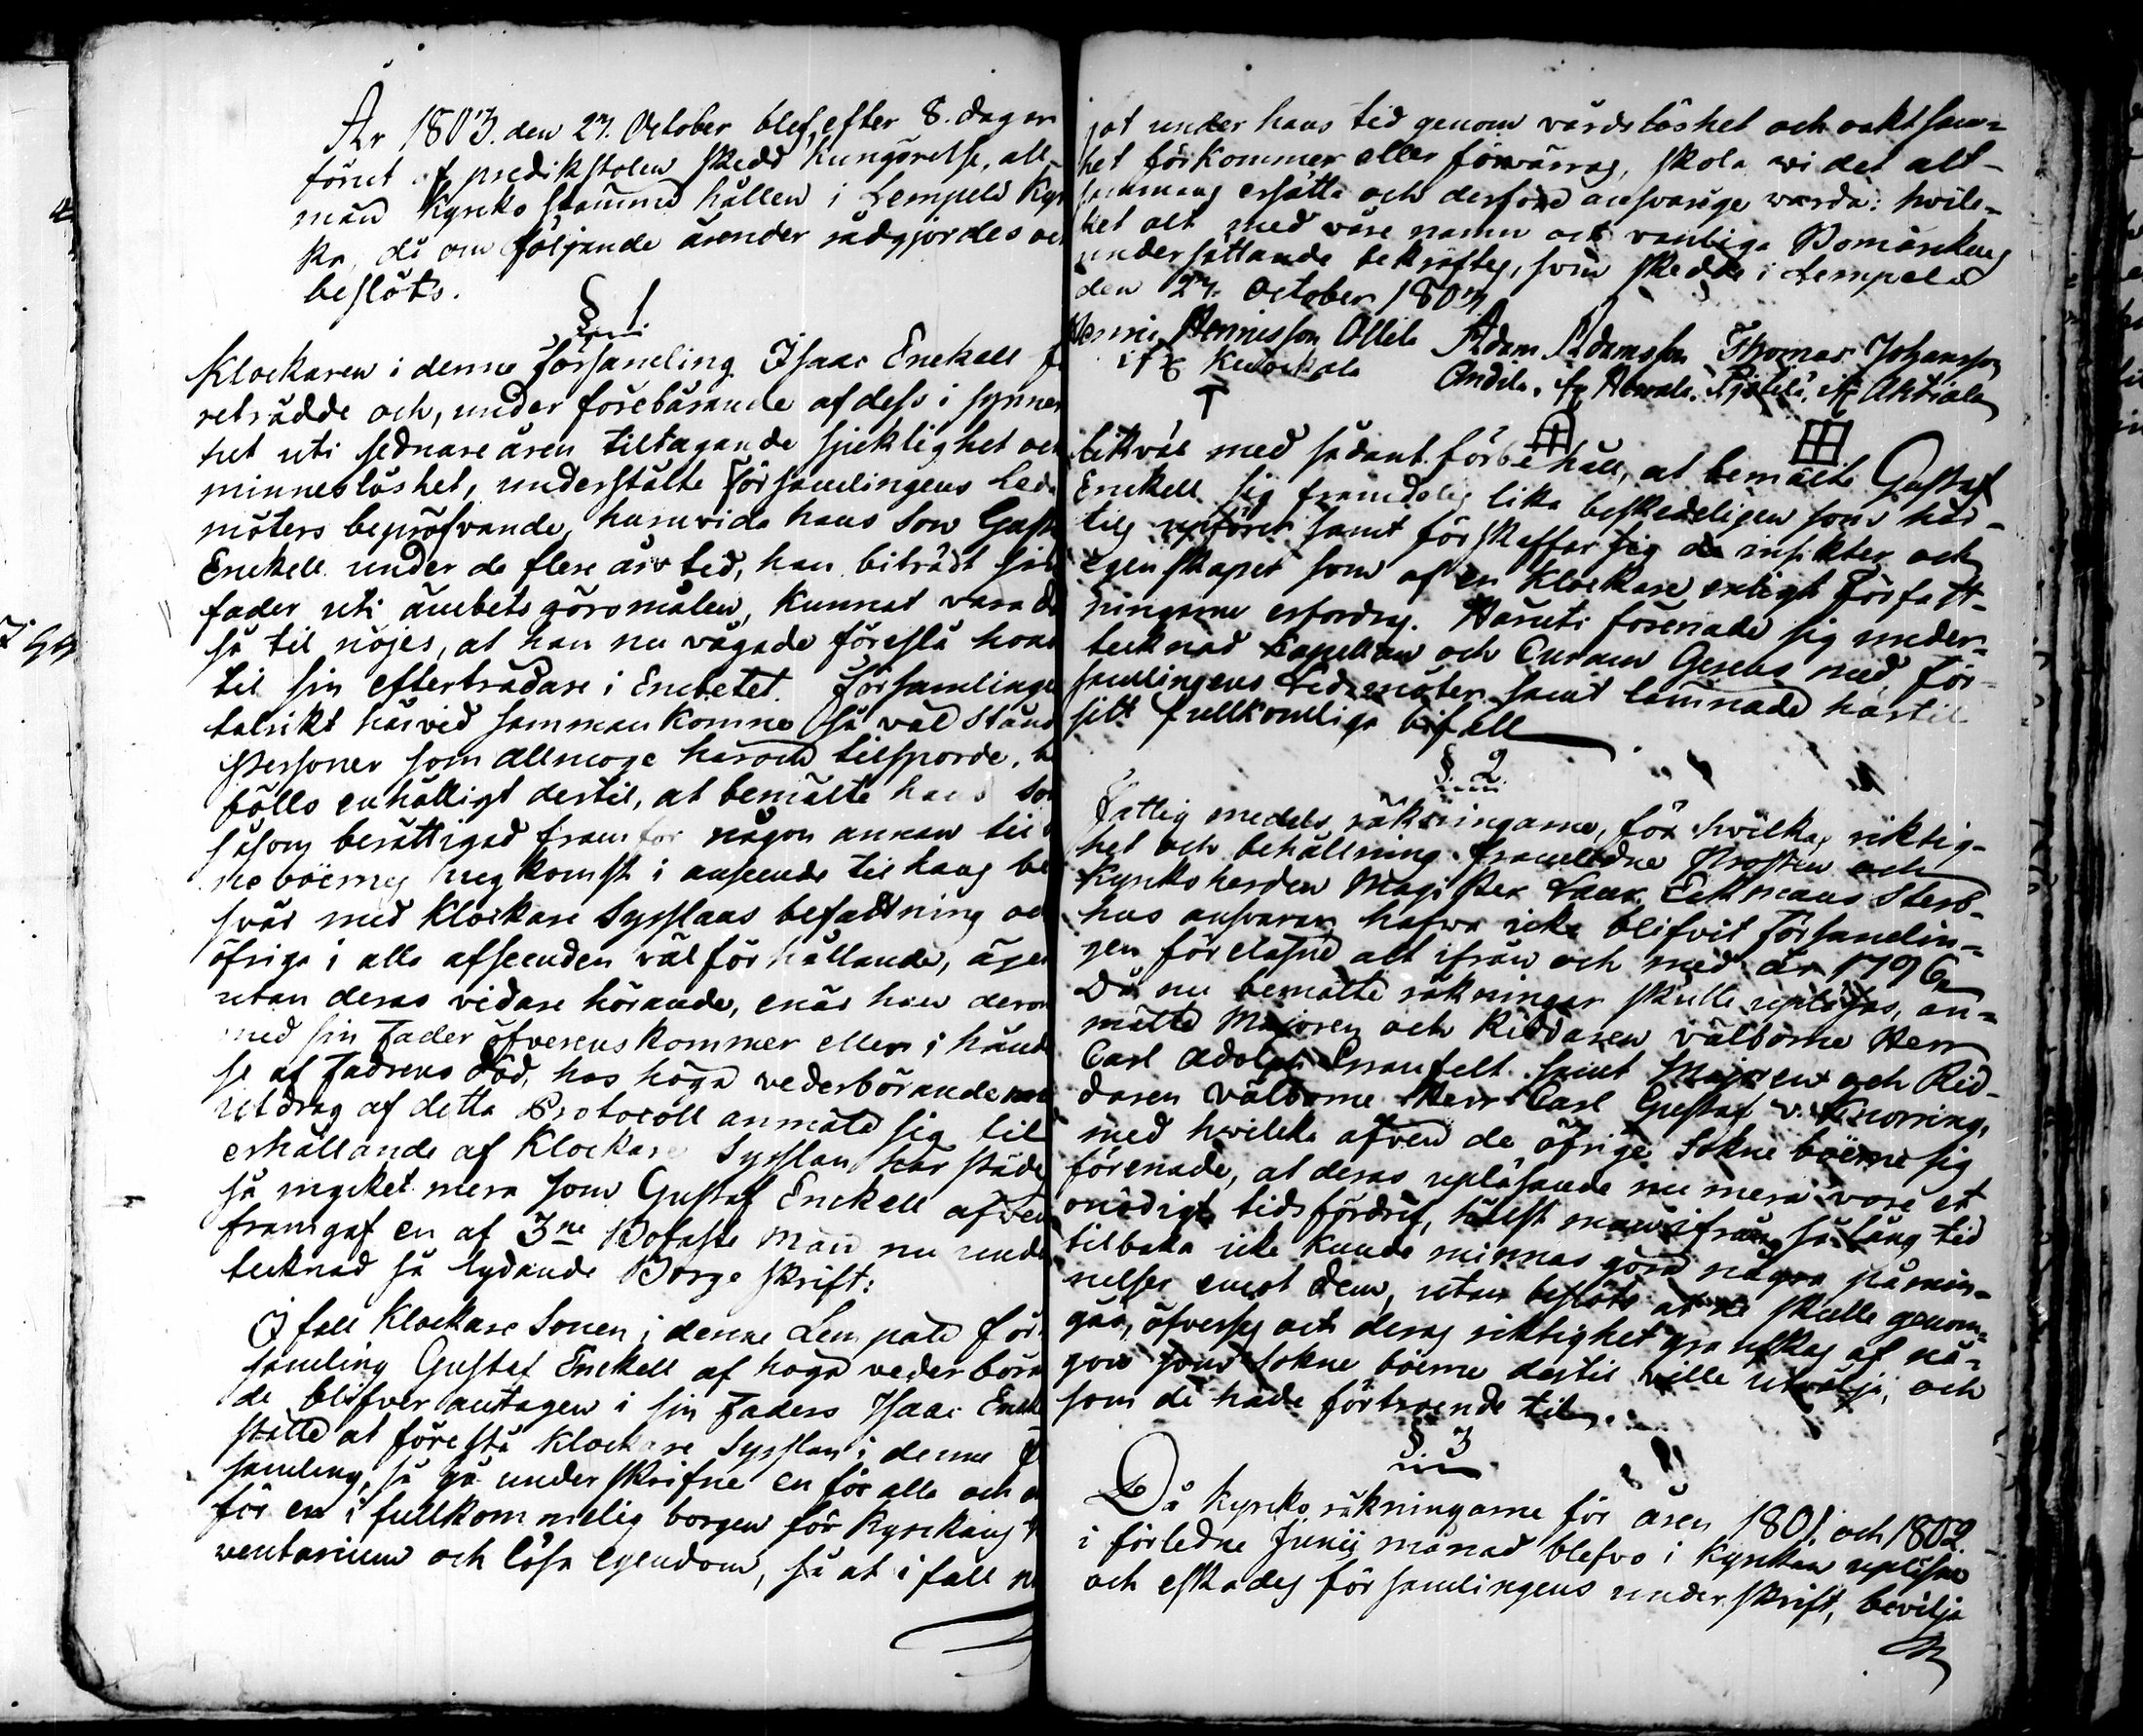 År 1803. den 27. October blef, efter 8. dagar
förut af predikstolen skedd Kungörelse, all-
män Kyrko stämma hållen i Lempelä Kyr
ka, då om följande ärender rådgjordes och
beslöts.
§ 1
Klockaren i denne Församling Isaac Enckell
reträdde och, under förebärande af dess i synner
het uti sednare åren tiltagande sjuklighet och
minneslöshet, understälte Församlingens Leda
möters bepröfvande, huruvida hans Son Gusta
Enckell under de flere års tid, han biträdt sin
fader uti ämbets göromålen, Kunnat vara de
så til nöjes, at han nu vågade föreslå hono
til sin efterträdare i Embetet. Församlinge
talrikt härvid samman komne så väl Stånd
Personer som allmoge härom tilsporde,
föllo enhälligt dertil, at bemälte hans Son
såsom berättigad framför någon annan til
neböernes hugkomst i anseende til hans be
svär med Klockare Sysslans befattning och
öfriga i alla afseenden väl för hållande, äger
utan deras vidare hörande, enär han derom
med sin Fader öfverens kommer eller i hände
se af Fadrens död, hos höga vederbörande med
utdrag af detta Protocoll anmäla sig til
erhållande af Klockare Sysslan här städe
så mycket mera som Gustaf Enckell äfven
framgaf en af 3ne Bofaste Män nu unde
tecknad så lydande Borge skrift:
I fall Klockare Sonen i denne Lempälä För
samling Gustaf Enckell af höga vederböra
de blifver antagen i sin Faders Isaac Enck
ställe at förestå Klockare Sysslan i denne
samling, så gå underskrifne en för alla och
för en i fullkommelig borgen för Kyrckans
ventarium och lösa egendom, så at i fall
got under hans tid genom vårdslöshet och oaktsam=
het förkommer eller förvärras, skola wi det alt-
sammans ersätta och derföre answarige warda: hwil-
ket alt med våre namn och vanliga Bomärckens
undersättande bekräftes, som skedde i Lempelä
den 27. October 1803.
Henric Hennicsson Ollila Adam Adamsson Thomas Johansson
ifr. Andila, fr. Aktiala
likväl med sådant förbehåll, at bemälte Gustaf
Enckell sig framdeles lika beskedeligen som här-
tils upförer samt förskaffar sig de insikter och
egenskaper som af en Klockare enligt Författ-
ningarne erfordras. Häruti förenade sig under-
tecknad Capellan och Curam Gerens med För-
samlingens Ledamöter samt lämnade härtil
sitt fullkomliga bifall
§. 2
Fattig medels räkningarne, för hvilkas riktig-
het och behållning framledne Prosten och
Kyrkoherden Magister Eckmans Sterb-
hus ansvarar, hafva icke blifvit Församlin=
gen föreläsne alt ifrån och med år 1796.
Då nu bemälte räkningar skulle upläsas, an=
mälte Majoren och Riddaren välborne Herr
Carl Adolph Granfelt samt Majoren och Rid-
daren Välborne Herr Carl Gustaf v. Knorring,
med hvilka äfven de öfrige Sokneböerne sig
förenade, at deras upläsande nu mera vore et
onödigt tidsfördrif, hälst man ifrån så lång tid
tilbaka icke kunde minnas göra några påmin-
nelser emot dem, utan beslöts at de skulle genom=
gås, öfverses och deras riktighet granskas af nå-
gon som Sokne böerne dertil ville utvälja, och
som de hade förtroende til.
§. 3
Då Kyrko räkningarne för åren 1801. och 1802.
i förledne Junij månad blefvo i Kyrckan upläsne
och eskades församlingens underskrift, bevilja